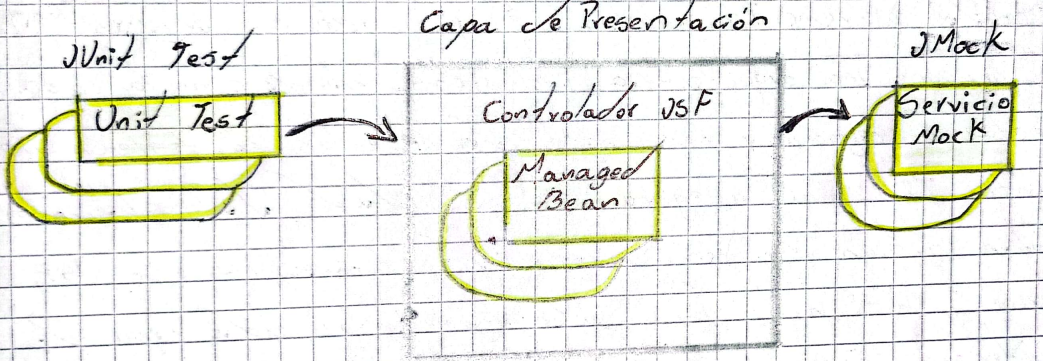 JUnit Test
Unit Test
Capa de Presentación
Controlador JSF
Managed
Bean
JMock
Servicio
Mock